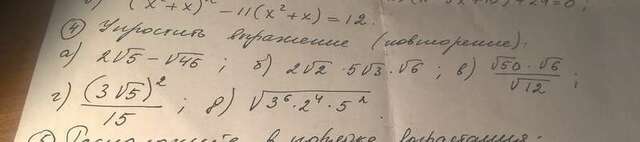 (x²+x)² - 11(x²+x) = 12.
④ Упростить выражение (повторение):
а) 2√5 - √45 ; б) 2√2 · 5√3 · √6 ; в) √50 · √6 / √12 ;
г) (3√5)² / 15 ; д) √3⁶ · 2⁴ · 5² .
порядке возрастания: